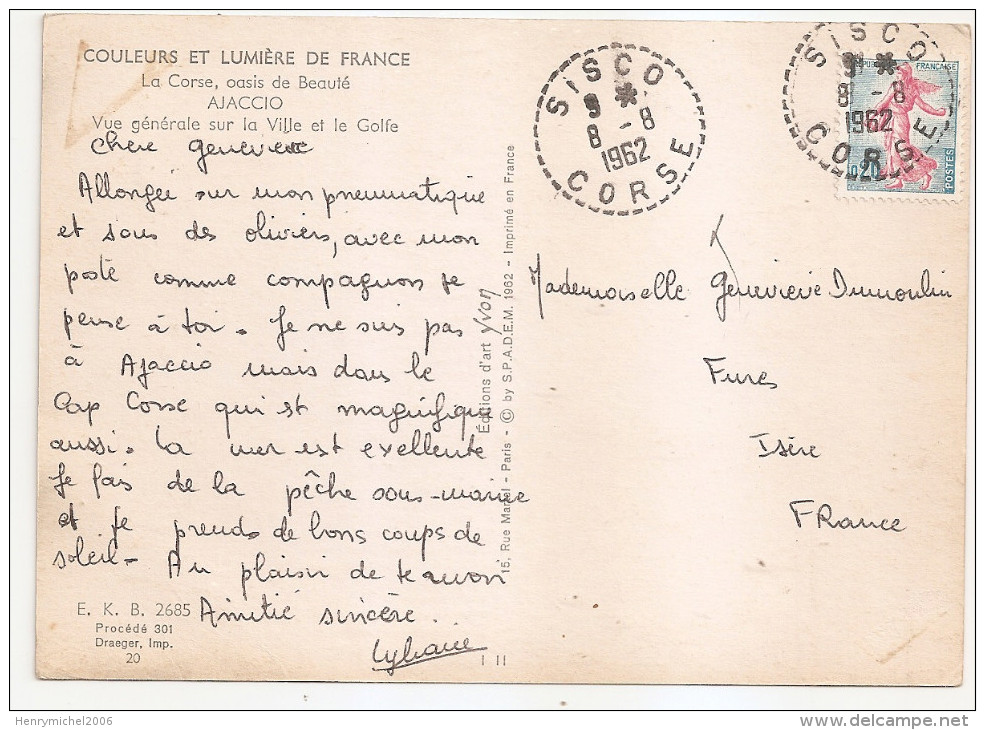 COULEURS ET LUMIÈRE DE FRANCE
La Corse, oasis de Beauté
AJACCIO
Vue générale sur la Ville et le Golfe
Chère Geneviève
Allongée sur mon pneumatique
et sous des oliviers, avec mon
poste comme compagnon je
pense à toi. Je ne suis pas
à Ajaccio mais dans le
Cap Corse qui est magnifique
aussi. La mer est exellente
Je fais de la pêche sous-marine
et je prends de bons coups de
soleil - Au plaisir de te
Amitié sincère.
E. K. B. 2685
Procédé 301
Draeger, Imp.
20
I II
15, Rue Martel - Paris - © by S.P.A.D.E.M. 1962 - Imprimé en France
Éditions d'art Yvon
SISCO
9 *
8 - 8
1962
CORSE
SISCO
9 *
8 - 8
1962
CORSE
FRANÇAISE
0,20
POSTES
Mademoiselle Geneviève Dumoulin
Fures
Isère
FRance
Henrymichel2006
delcampe.net